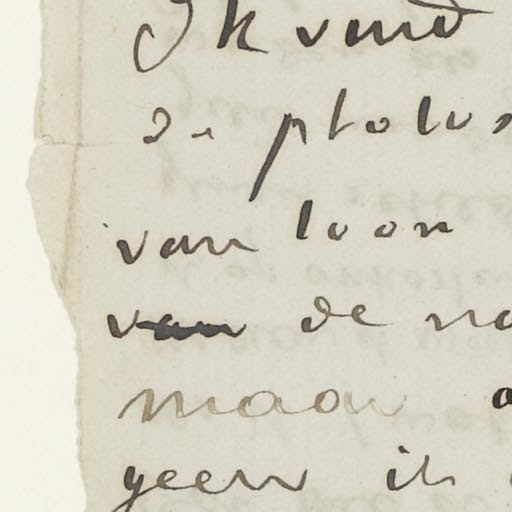 Ik vind
de photos
van toon
van de na
maar
geen ik